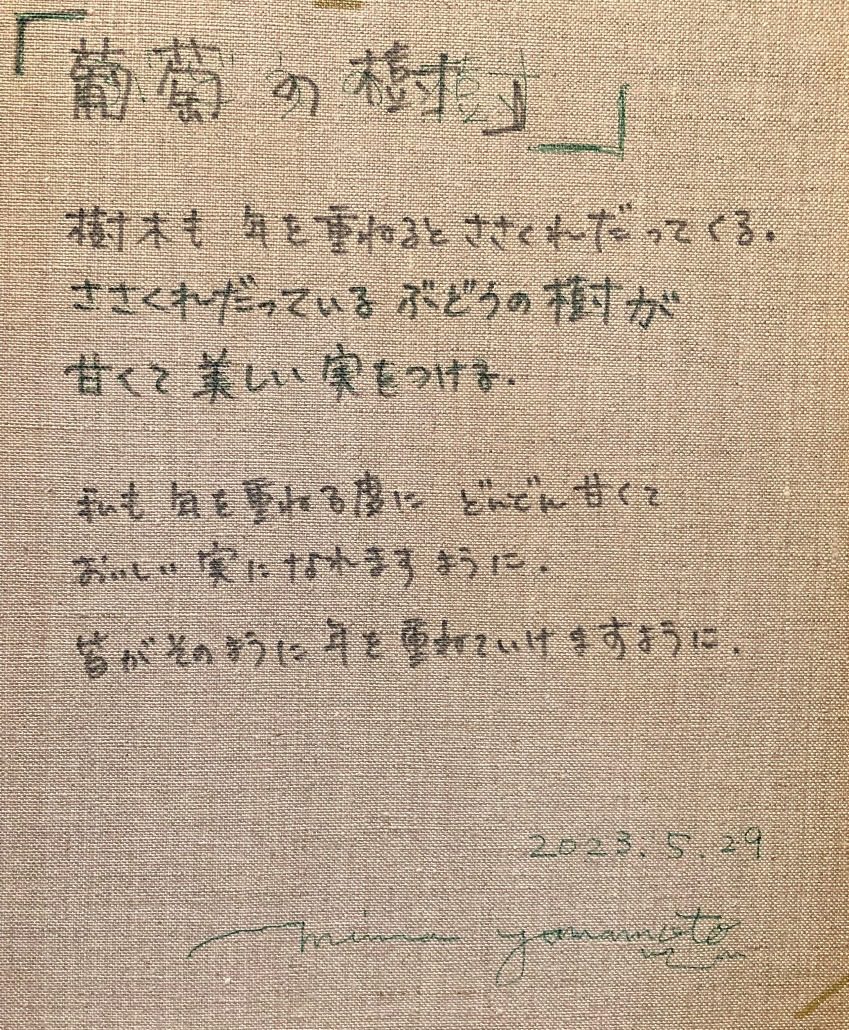 「葡萄の樹」
樹木も 年を重ねるとささくれだってくる.
ささくれだっている ぶどうの樹が
甘くて 美しい 実をつける.
私も 年を重ねる度に どんどん甘くて
おいしい 実に なれますように.
皆がそのように 年を重ねていけますように.
2023.5.29.
mima yamamoto